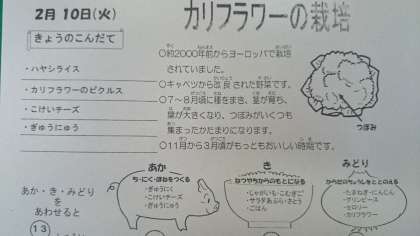 2月10日(火)
カリフラワーの栽培
きょうのこんだて
・ハヤシライス
・カリフラワーのピクルス
・こけいチーズ
・ぎゅうにゅう
○約2000年前からヨーロッパで栽培
されていました。
○キャベツから改良された野菜です。
○7～8月頃に種をまき、茎が育ち、
葉が大きくなり、つぼみがいくつも
集まったかたまりになります。
○11月から3月頃がもっともおいしい時期です。
つぼみ
あか・き・みどり
をあわせると
13
あか
ち・にく・ほねをつくる
・ぎゅうにく
・こけいチーズ
・ぎゅうにゅう
き
ねつやちからのもとになる
・じゃがいも・こむぎこ
・サラダあぶら・さとう
・ごはん
みどり
からだのちょうしをととのえる
・たまねぎ・にんじん
・グリンピース
・セロリー
・カリフラワー